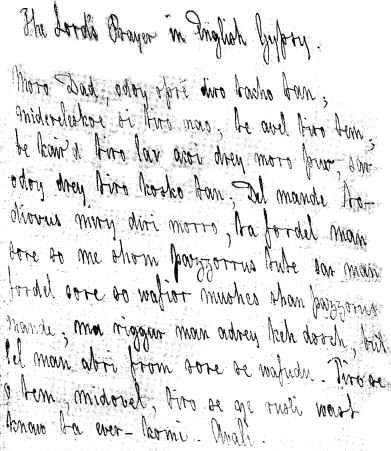 The Lord's Prayer in English Gypsy.
Moro Dad, odoy opré tiro tacho tan;
Midereleskoe si tiro nao; te avel tiro tem;
te kair'd tiro lav acoi drey moro puv, sar
odoy drey tiro kosko tan; Del mande to-
divvus miry diri morro, ta fordel man
sore so me shom pazzorrus tute sar man
fordel sore so wafior mushes shan pazzorrus
mande; ma riggur man adrey keh dosch, but
lel man abri from sore se wafudu. Tiro se
o tem, midovel, tiro se o ruslo wast
knaw ta ever-komi. Avali.